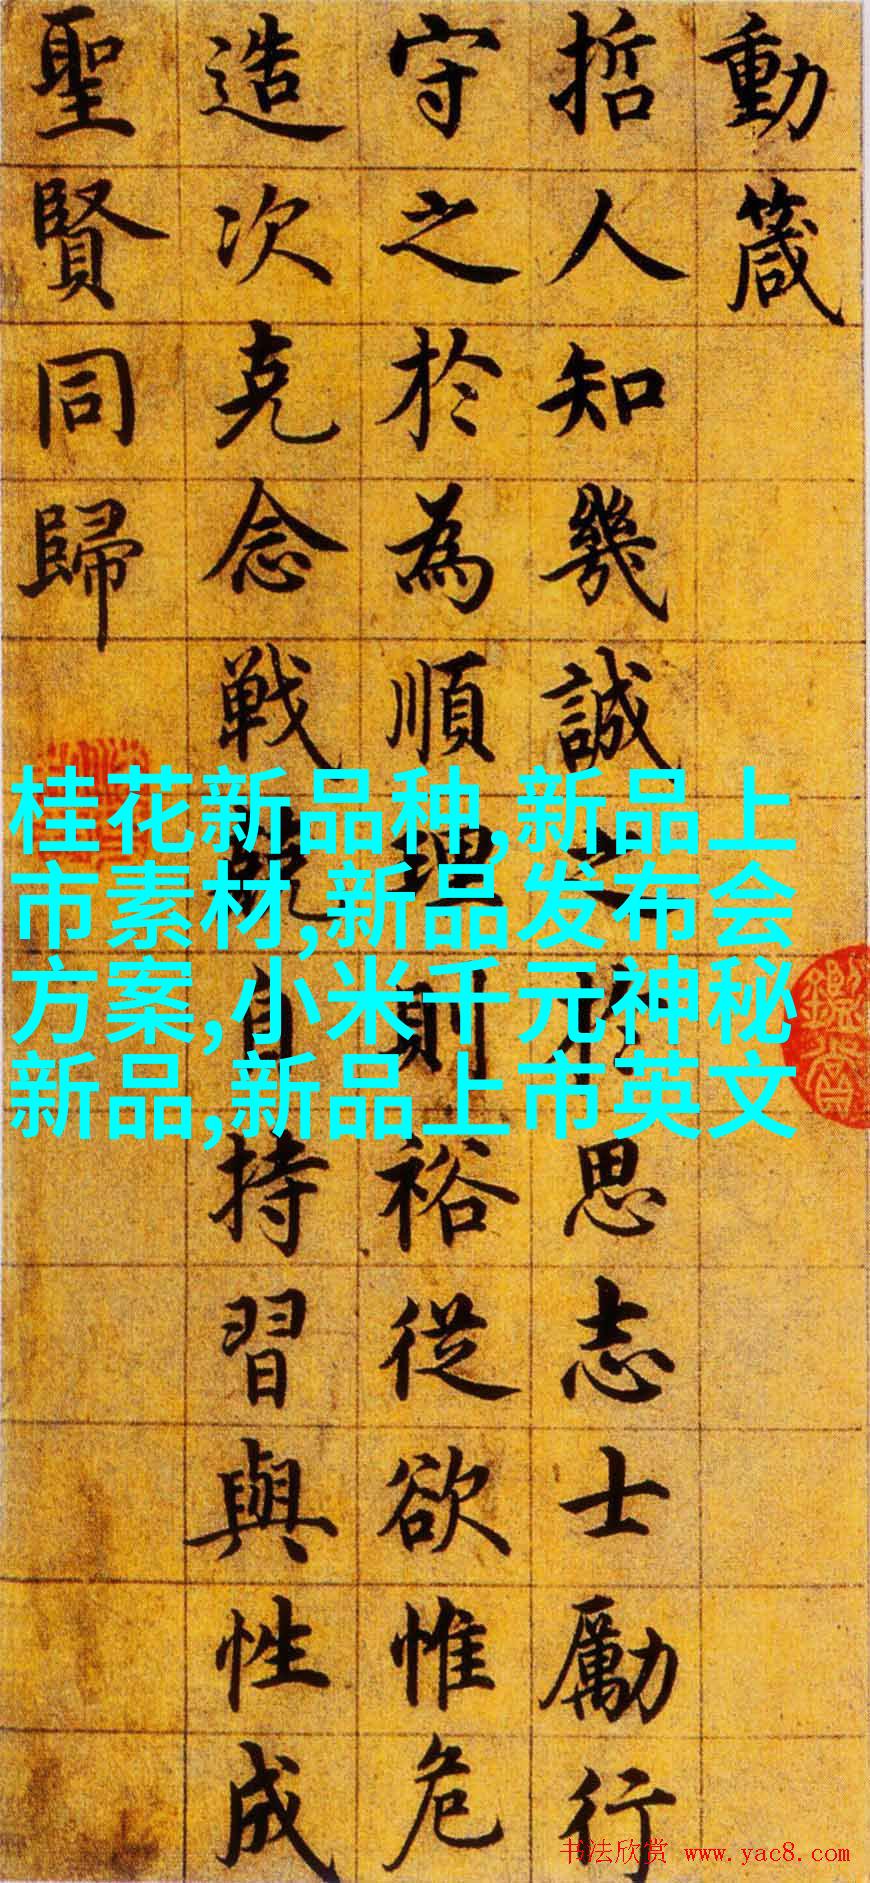 動箴
哲人知幾誠之於思志士勵行
守之於為順理則裕從欲惟危
造次克念戦兢自持習與性成
聖賢同歸
桂花新品种,新品上
市素材,新品发布会
方案,小米千元神秘
新品,新品上市英文
书法欣赏 www.yac8.com